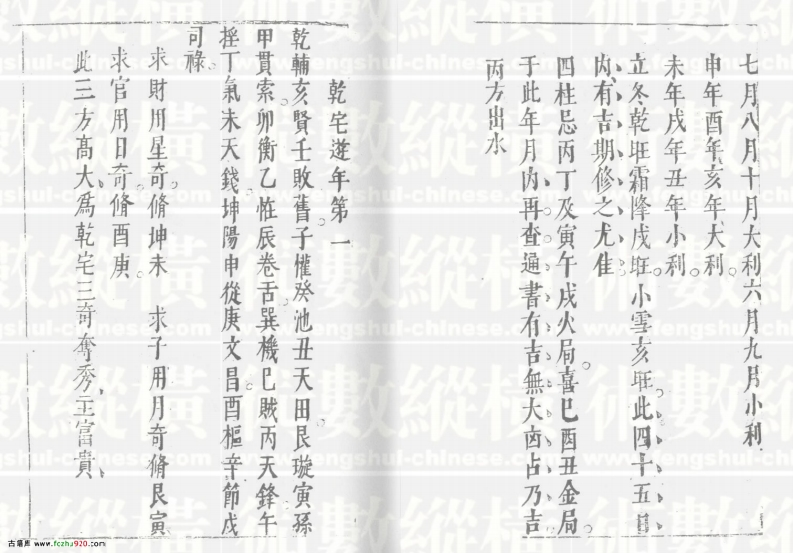 七月八月十月大利六月九月小利
申年酉年亥年大利
未年戌年丑年小利
立冬乾旺霜降戌旺小雪亥旺此四十五日
内有吉期修之尤佳
四柱忌丙丁及寅午戌火局喜巳酉丑金局
于此年月内再查通書有吉無大凶占乃吉
丙方出水
乾宅遊年第一
乾輔亥賢壬敗舊子懽癸池丑天田艮璇寅孫
甲貫索卯衡乙帷辰卷舌巽機巳賊丙天鋒午
搖丁氣未天錢坤陽申從庚文昌酉樞辛節戌
司祿
求財用星奇脩坤未 求子用月奇脩艮寅
求官用日奇脩酉庚
此三方高大爲乾宅三奇奪秀主富貴
古籍库 www.fczhu920.com
術數縱橫
www.fengshui-chinese.com